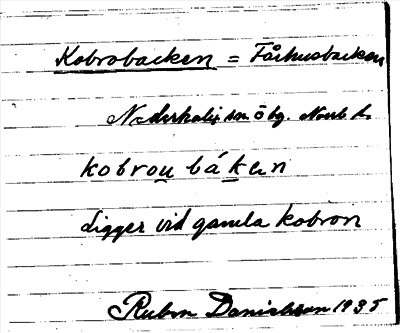 Kobrobacken = Fårhusbacken
Nederkalix sn ö bg. Norrb. l.
kobrou bákɛn
ligger vid gamla kobron
Ruben Danielsson 1935